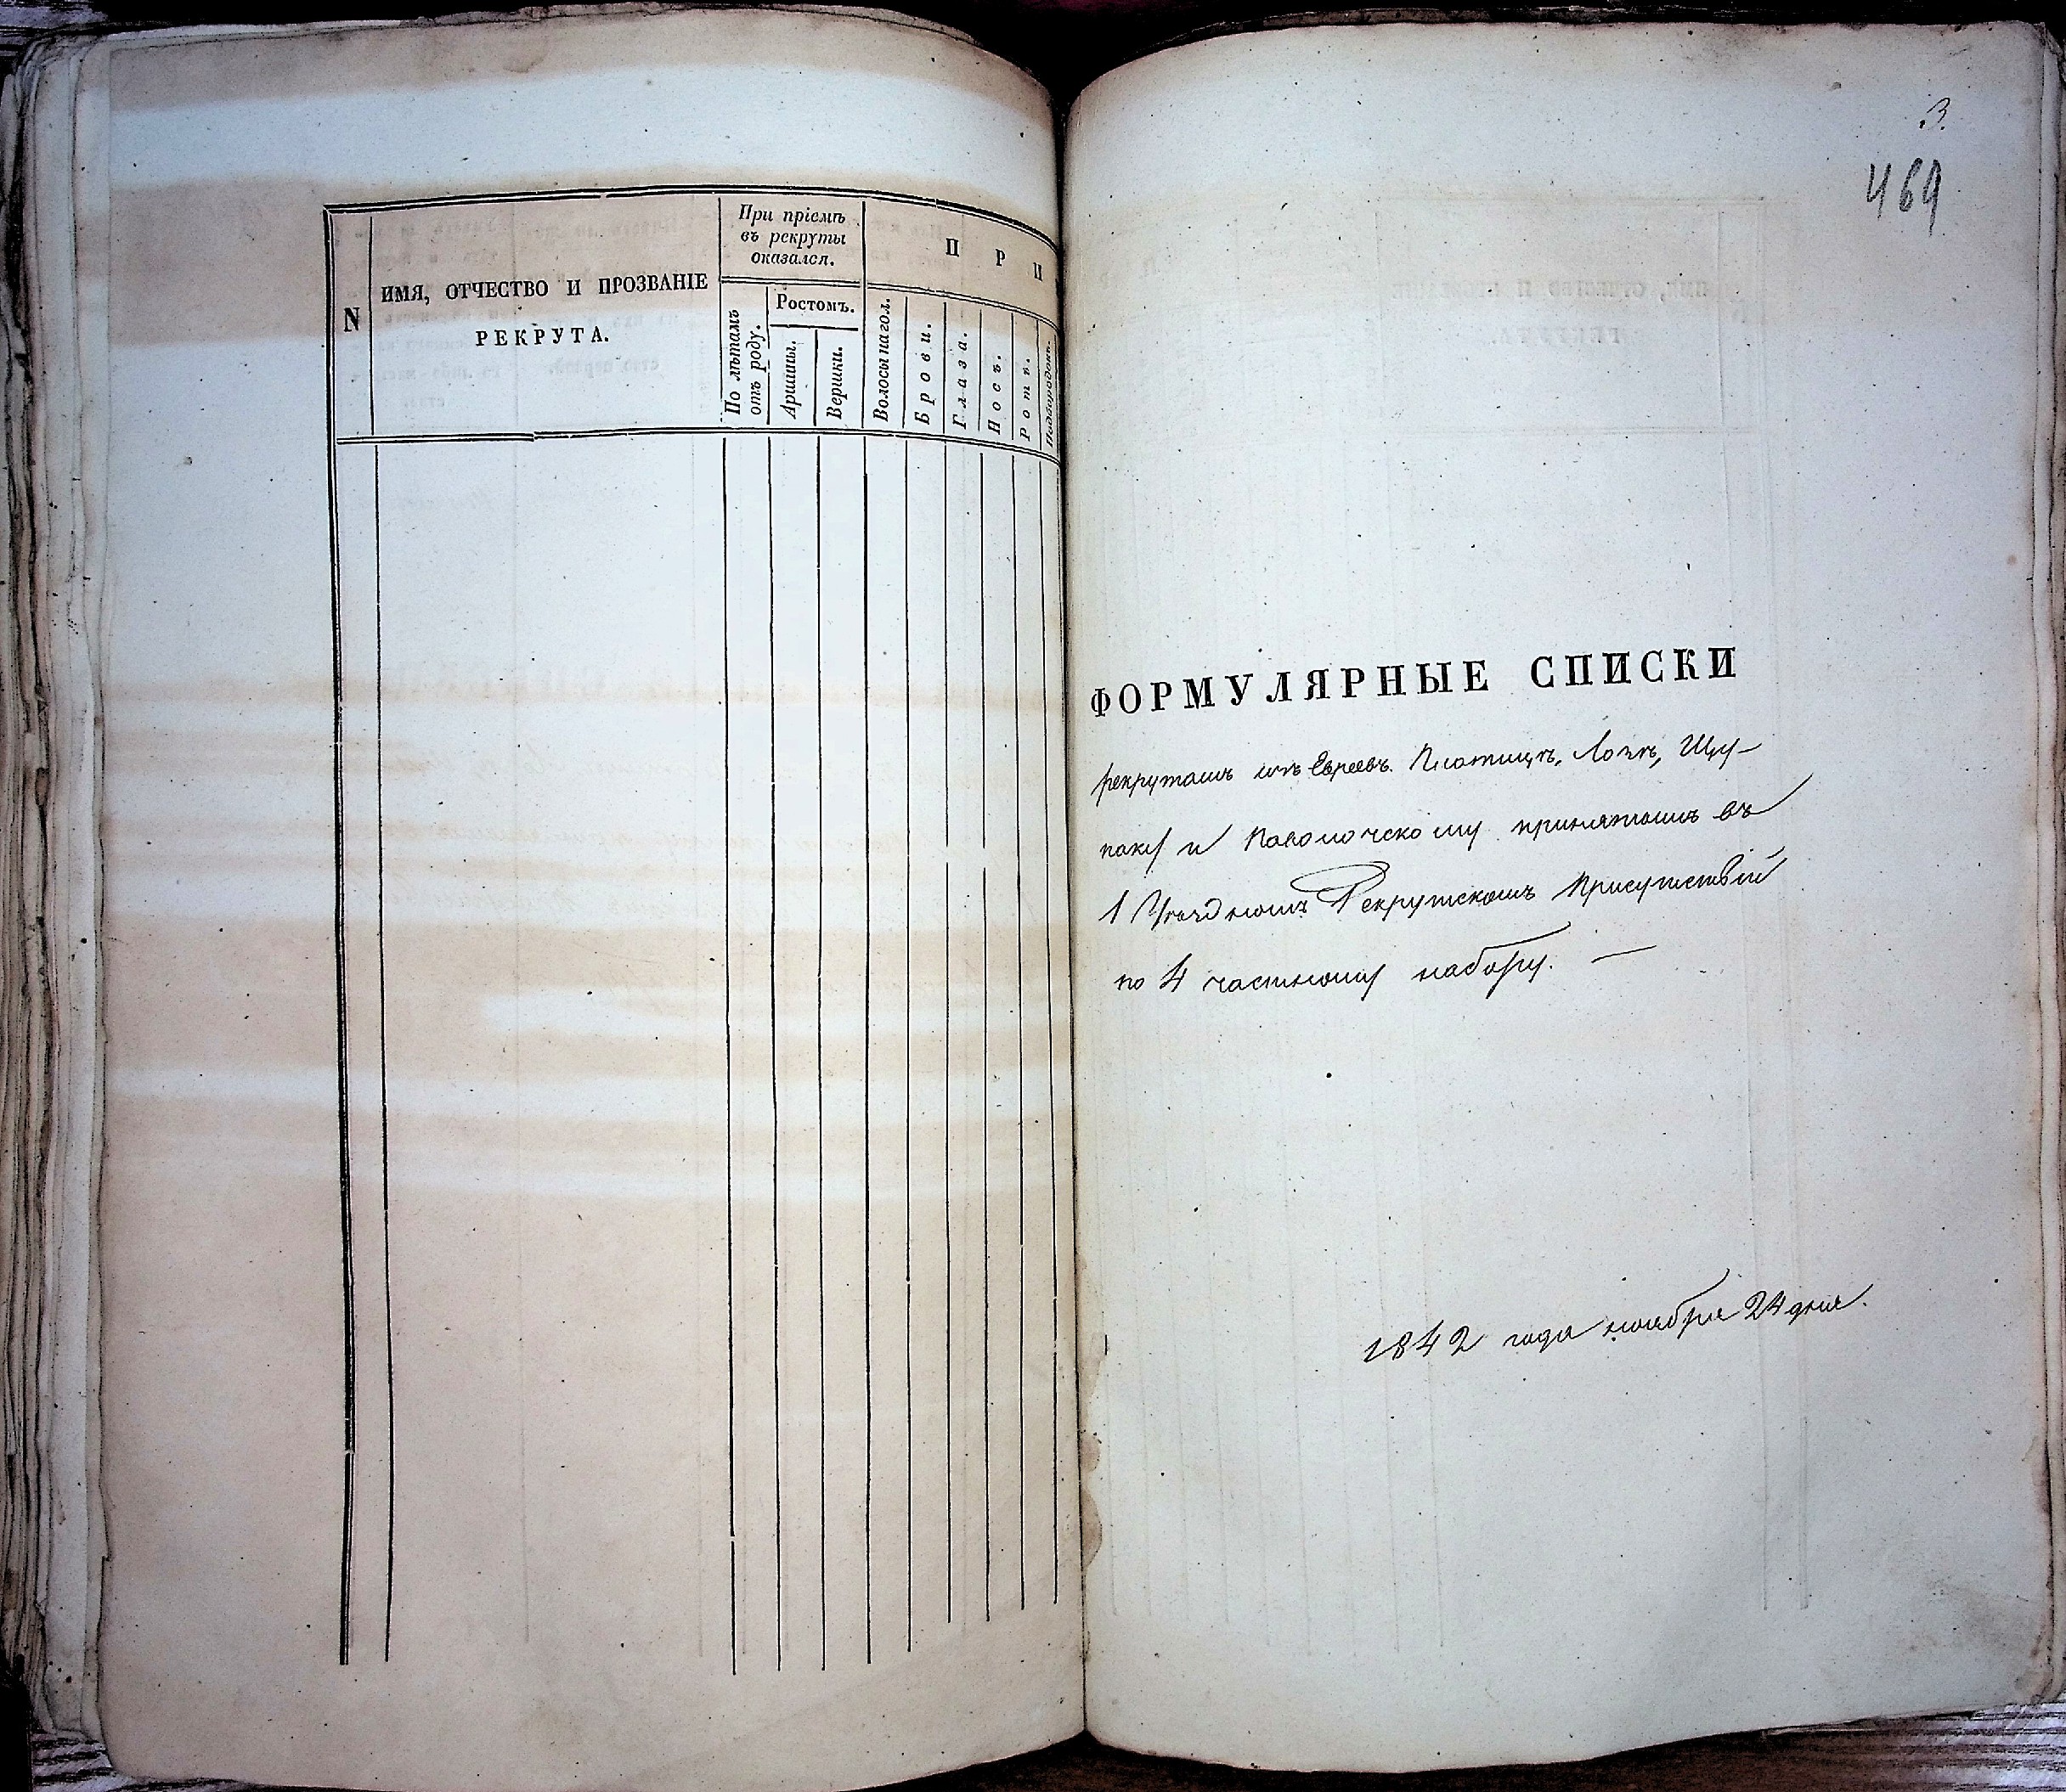 N
ИМЯ, ОТЧЕСТВО И ПРОЗВАНІЕ
РЕКРУТА.
При пріемѣ
въ рекруты
оказался.
По лѣтамъ
отъ роду.
Ростомъ.
Аршины.
Вершки.
П Р И
Волосы на гол.
Брови.
Глаза.
Носъ.
Ротъ.
Подбородокъ.
3.
469
ФОРМУЛЯРНЫЕ СПИСКИ
рекрутамъ изъ Евреевъ. Пятищъ, Лозъ, Щу-
паку и Паволочскому принятымъ въ
1 Уѣздномъ Рекрутскомъ Присутствіи
по 4 частному набору. —
1842 года ноября 24 дня.